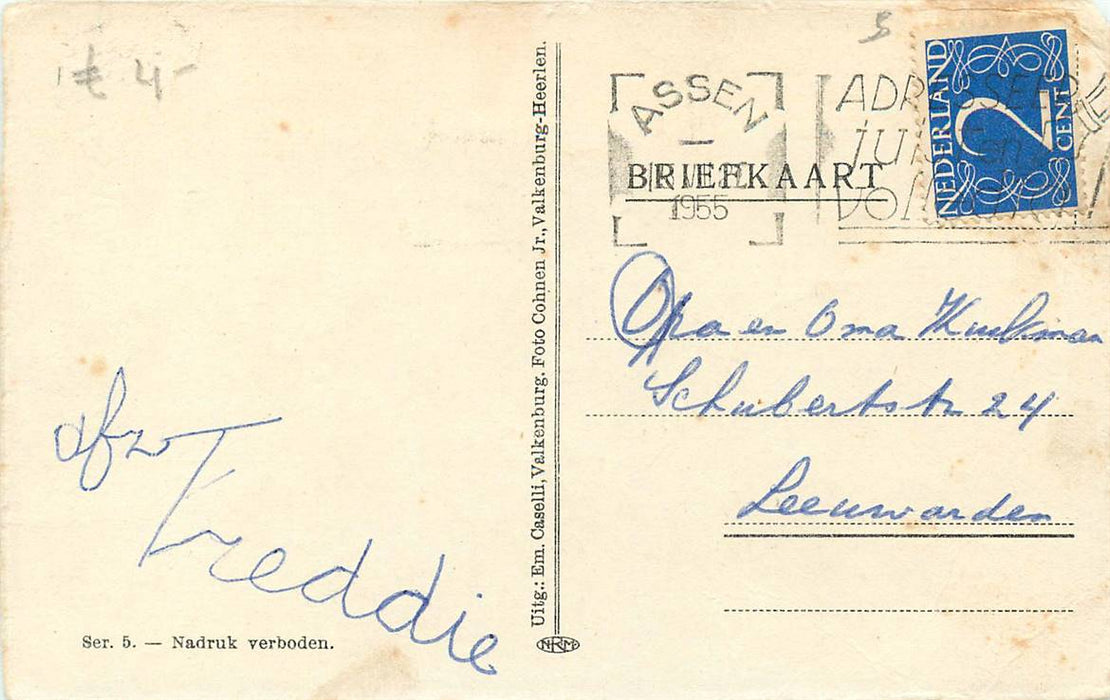 € 4-
5
NEDERLAND
2
CENT
ASSEN
1955
ADRESSEER
JUIST en
BRIEFKAART
Opa en Oma Kuikman
Schubertstr 24
Leeuwarden
afz
Freddie
Ser. 5. — Nadruk verboden.
Uitg.: Em. Caselli, Valkenburg. Foto Cohnen Jr., Valkenburg-Heerlen.
NRM